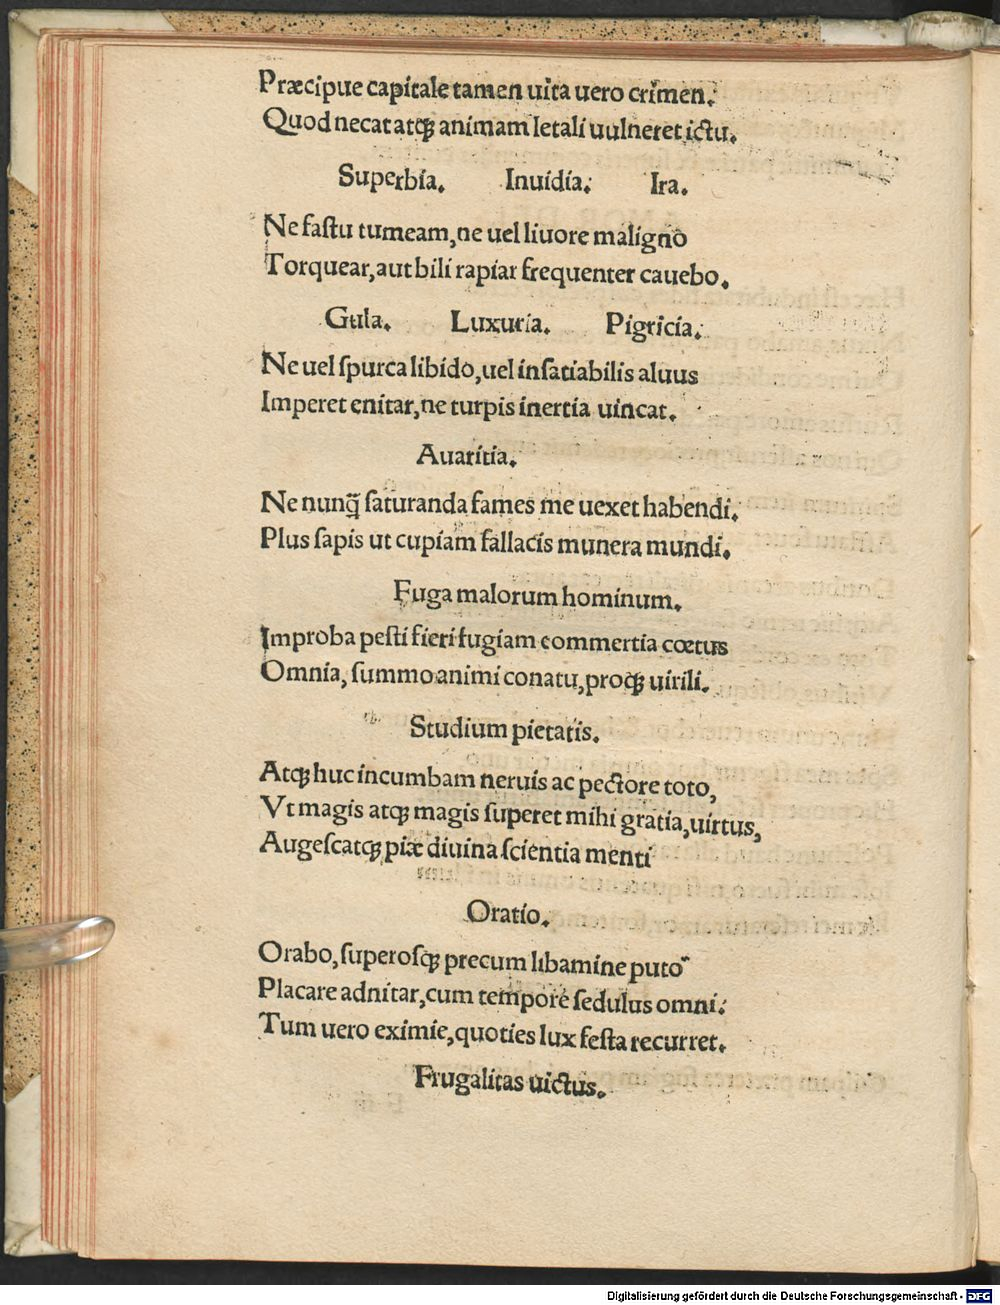 Præcipue capitale tamen uita uero crimen.
Quod necat atqꝫ animam letali uulneret ictu.
Superbia. Inuidia. Ira.
Ne faſtu tumeam, ne uel liuore maligno
Torquear, aut bili rapiar frequenter cauebo.
Gula. Luxuria. Pigricia.
Ne uel ſpurca libido, uel inſatiabilis aluus
Imperet enitar, ne turpis inertia uincat.
Auaritia.
Ne nunq̃ ſaturanda fames me uexet habendi.
Plus ſapis ut cupiam fallacis munera mundi.
Fuga malorum hominum.
Improba peſti fieri fugiam commertia cœtus
Omnia, ſummo animi conatu, proqꝫ uirili.
Studium pietatis.
Atqꝫ huc incumbam neruis ac pectore toto,
Vt magis atqꝫ magis ſuperet mihi gratia, uirtus,
Augeſcatqꝫ piæ diuina ſcientia menti
Oratio.
Orabo, ſuperoſqꝫ precum libamine puro
Placare adnitar, cum tempore ſedulus omni:
Tum uero eximie, quoties lux feſta recurret.
Frugalitas uictus.
Digitalisierung gefördert durch die Deutsche Forschungsgemeinschaft - DFG